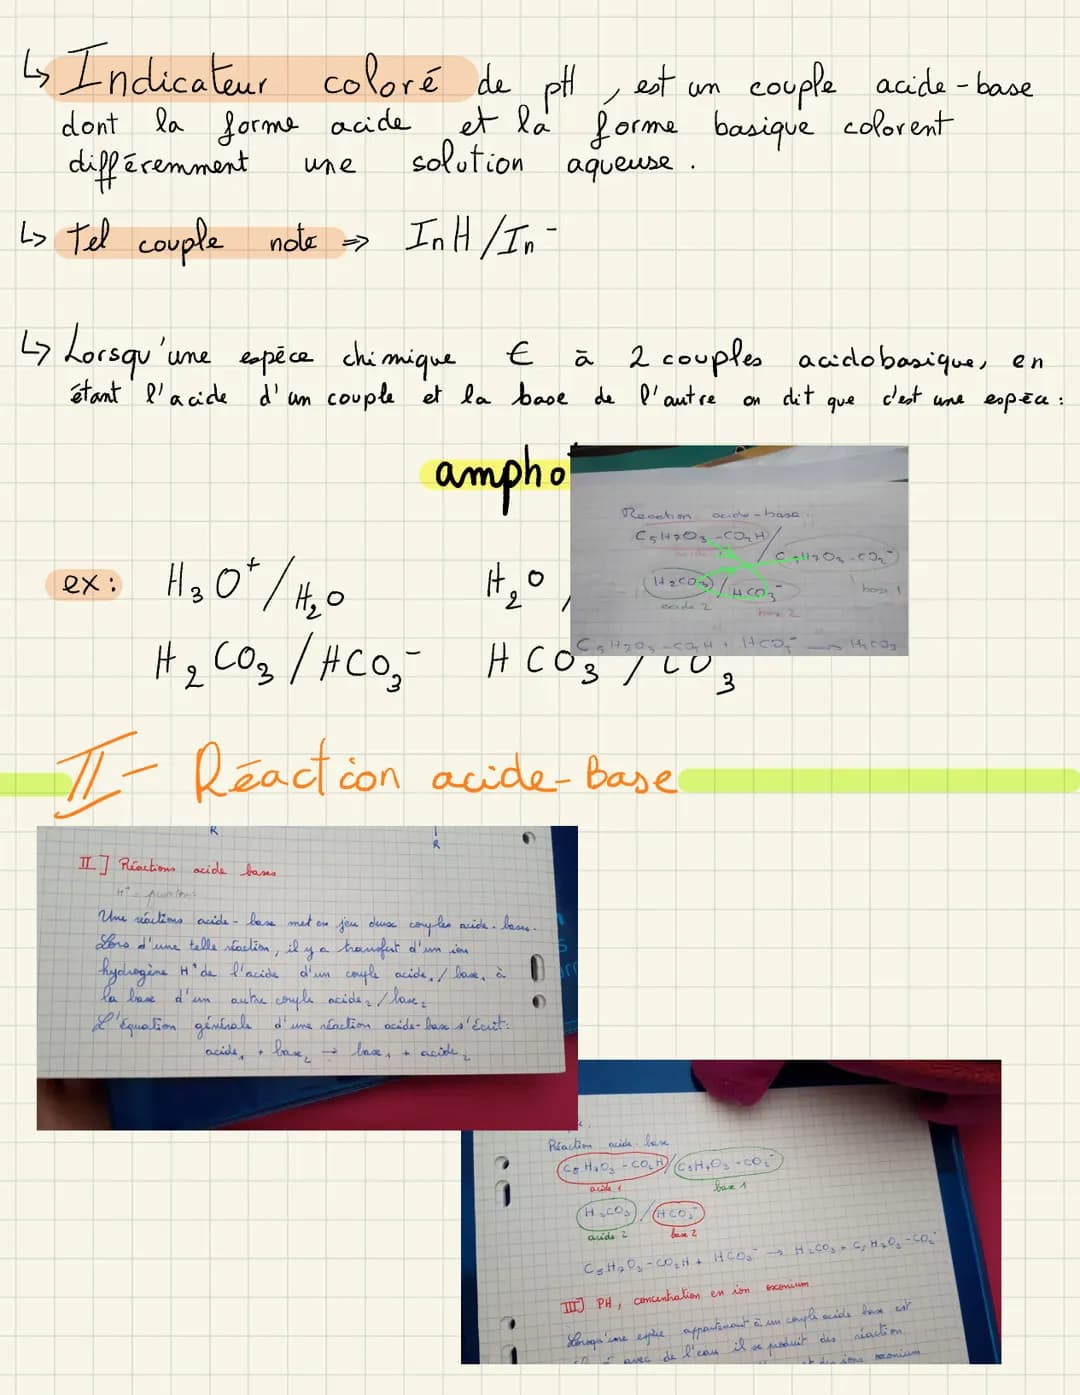 ↳ Indicateur coloré de pH, est un couple acide-base
dont la forme acide et la forme basique colorent
différemment une solution aqueuse.
↳ Tel couple note ⇒ InH/In⁻
↳ Lorsqu'une espèce chimique € à 2 couples acidobasique, en
étant l'acide d'un couple et la base de l'autre on dit que c'est une espèce :
ampho
Reaction acide-base
C₅H₇O₃-CO₂H/
C₅H₇O₃-CO₂⁻
H₂CO₃/HCO₃⁻
base 1
acide 2
base 2
C₅H₇O₃-CO₂H + HCO₃⁻ → H₂CO₃
ex: H₃O⁺/H₂O H₂O,
H₂CO₃/HCO₃⁻ HCO₃ / CO₃
II- Réaction acide-Base
R R
II] Réactions acide bases
H⁺ = proton
Une réactions acide-base met en jeu deux couples acide-bases.
Lors d'une telle réaction, il y a transfert d'un ion
hydrogène H⁺ de l'acide d'un couple acide₁/base₁ à
la base d'un autre couple acide₂/base₂
L'équation générale d'une réaction acide-base s'écrit:
acide₁ + base₂ → base₁ + acide₂
Réaction acide-base
C₅H₇O₃-CO₂H/C₅H₇O₃-CO₂⁻
acide 1 base 1
H₂CO₃/HCO₃⁻
acide 2 base 2
C₅H₇O₃-CO₂H + HCO₃⁻ → H₂CO₃ + C₅H₇O₃-CO₂⁻
III] PH, concentration en ion oxonium
Lorsqu'une espèce appartenant à un couple acide base est
avec de l'eau il se produit des réaction
des ions oxonium